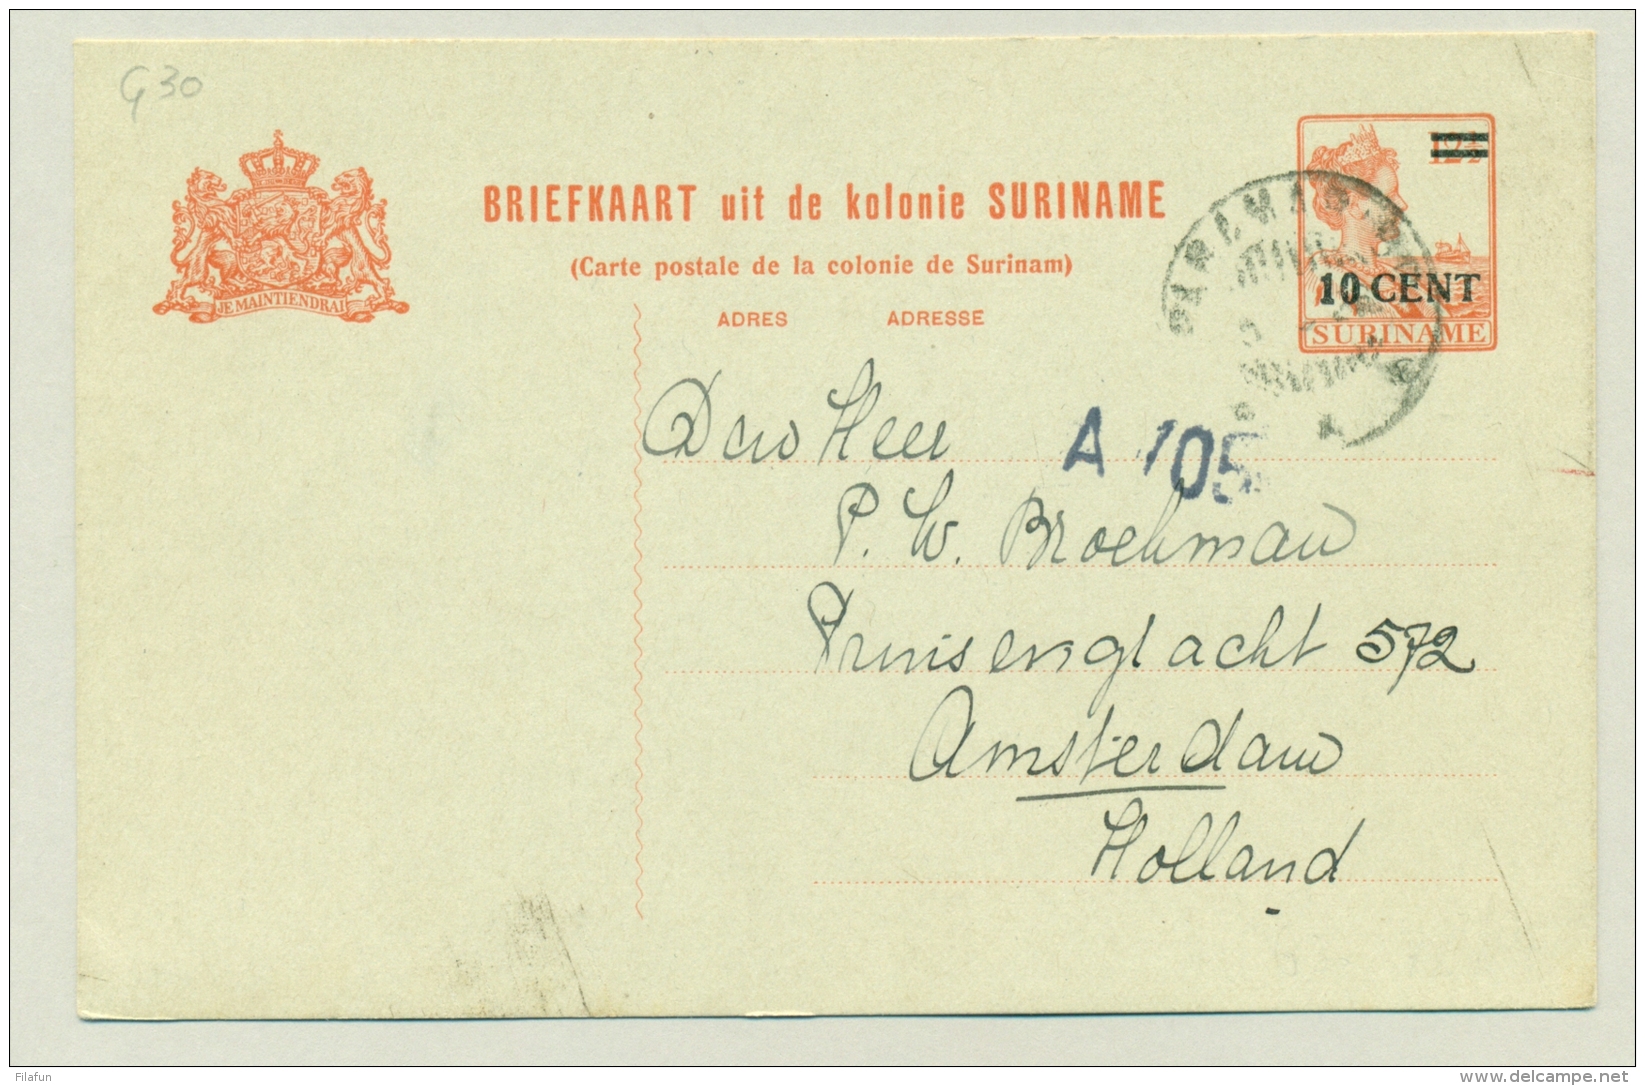 G30
BRIEFKAART uit de kolonie SURINAME
(Carte postale de la colonie de Surinam)
JE MAINTIENDRAI
12½
10 CENT
SURINAME
ADRES ADRESSE
Den Heer
A 105
P. W. Broekman
Prinsenglacht 572
Amsterdam
Holland
Filafun
www.delcampe.net